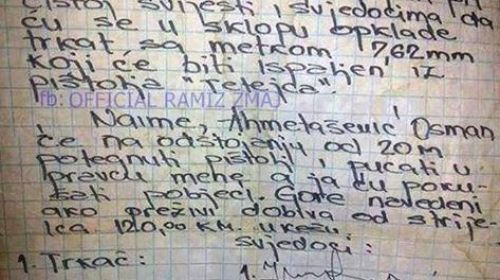 čistoj svijesti i svjedocima da
ću se u sklopu opklade
trkat sa metkom 7,62mm
koji će biti ispaljen iz
pištolja "Tetejca".
fb: OFFICIAL RAMIZ ZMAJ
Naime, Ahmetašević Osman
će na odstojanju od 20m
potegnuti pištolj i pucati u
pravcu mene a ja ću poku-
šati pobjeći. Gore navedeni
ako preživi dobiva od strije-
lca 120,00 KM. u kešu.
svjedogi:
1. Trkač:
1.